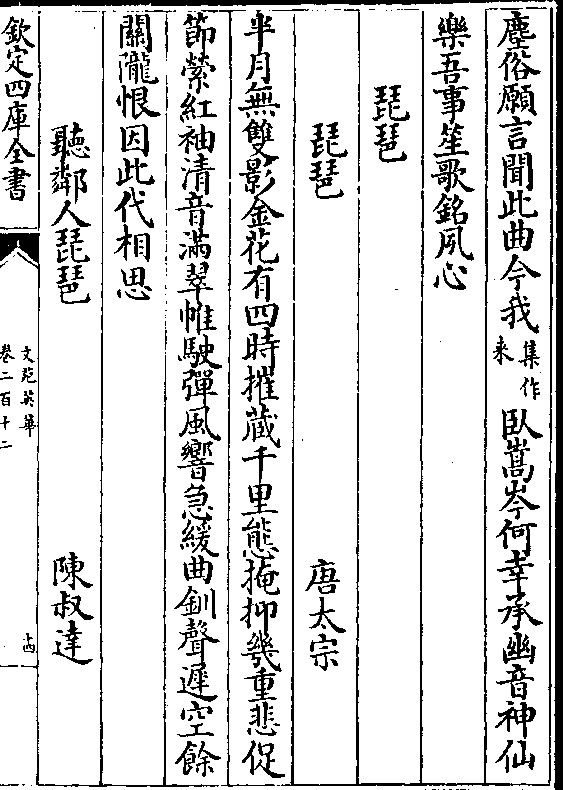 塵俗願言聞此曲今我集作來臥嵩岑何幸承幽音神仙
樂吾事笙歌銘夙心
琵琶
琵琶 唐太宗
半月無雙影金花有四時摧藏千里態掩抑幾重悲促
節縈紅袖清音滿翠帷駛彈風響急緩曲釧聲遲空餘
關隴恨因此代相思
聽鄰人琵琶 陳叔達
欽定四庫全書
文苑英華
卷二百十二
十四